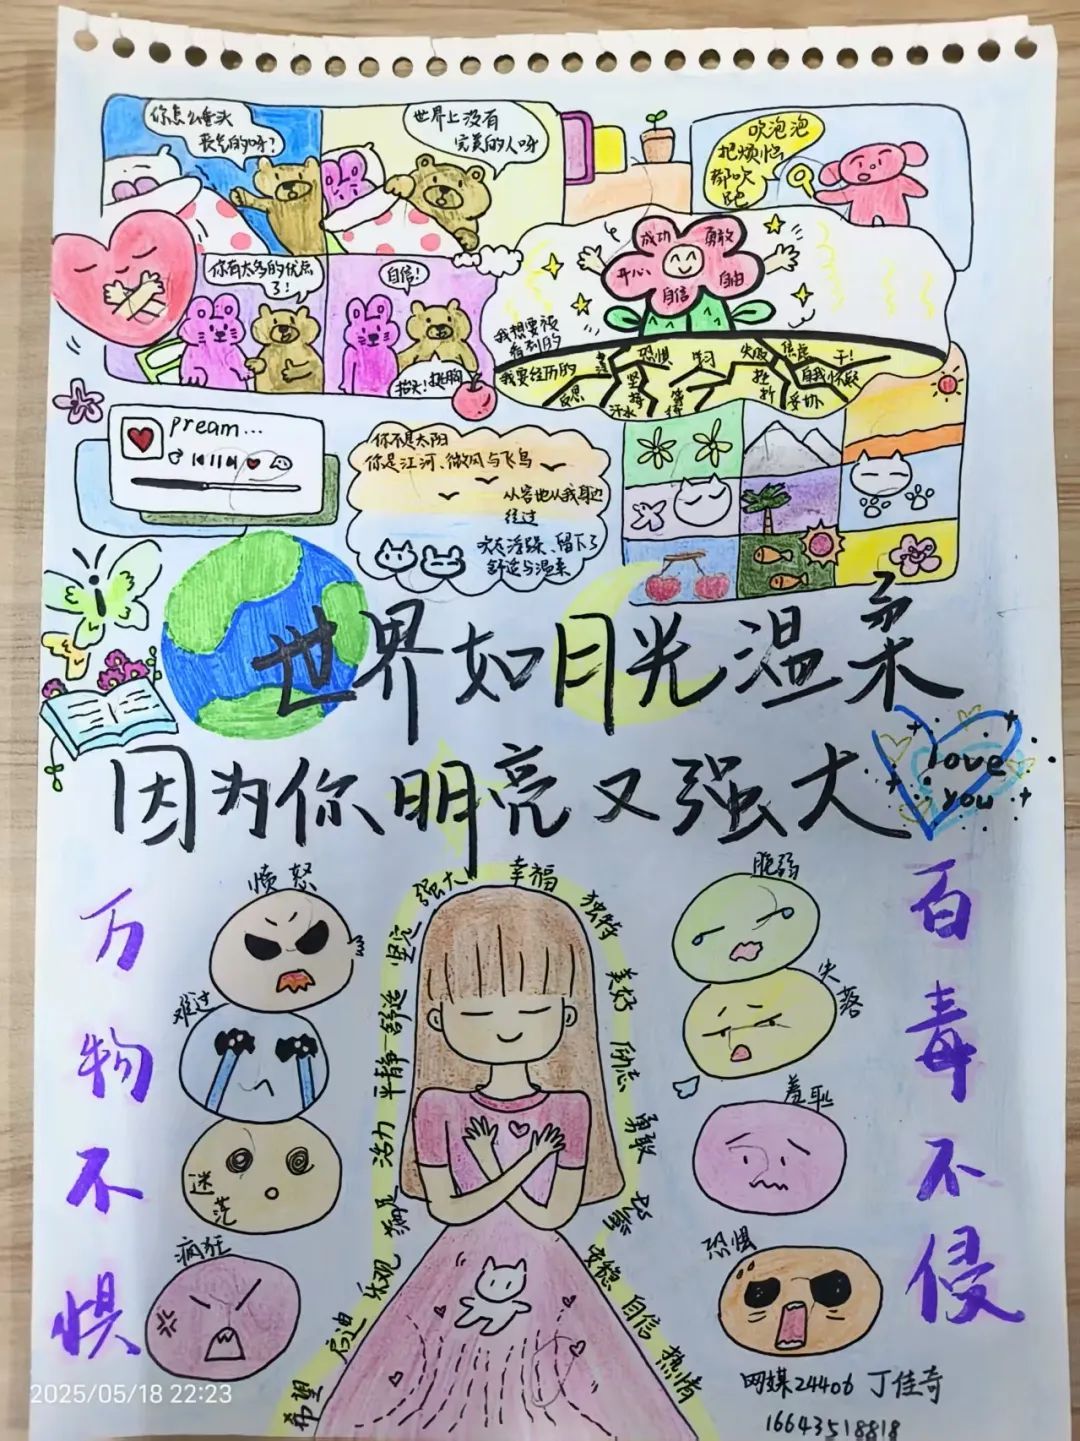 你怎么垂头
丧气的呀?
世界上没有
完美的人呀
吹泡泡
把烦恼
都吹
跑
你有太多的优点
了!
自信!
抬头!挺胸
成功
勇敢
开心
自信
自由
我想要被
看到的
我要经历的
恐惧
学习
失败
焦虑
干!
坚持
等待
挫折
自我怀疑
反思
汗水
妥协
pream...
你不是太阳
你是江河、微风与飞鸟
从容地从我身边
经过
吹走浮躁、留下了
舒适与温柔
世界如月光温柔
因为你明亮又强大
love
you
万物不惧
百毒不侵
愤怒
难过
迷茫
疯狂
脆弱
失落
羞耻
恐惧
希望
启迪
乐观
满足
活力
平静
舒适
坚定
强大
幸福
独特
美好
励志
勇敢
安稳
自信
热情
网媒24406 丁佳奇
16643518818
2025/05/18 22:23